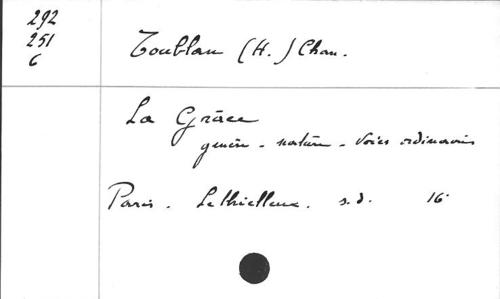 292
251
6
Toublan (H.) Chan.
La Grâce
genèse - nature - Voies ordinaires
Paris - Lethielleux. s.d. 16°